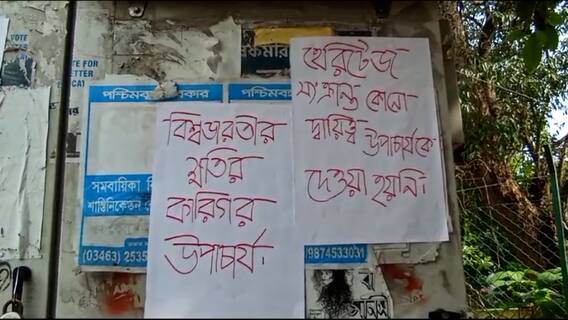 হেরিটেজ
সংক্রান্ত কোনো
দায়িত্ব উপাচার্যকে
দেওয়া হয়নি।
বিশ্বভারতীর
ক্ষতির
কারিগর
উপাচার্য।
পশ্চিমবঙ্গ সরকার
পশ্চিমবঙ্গ
সমবায়িকা
শান্তিনিকেতন
(03463) 2535
9874533031
VOTE FOR